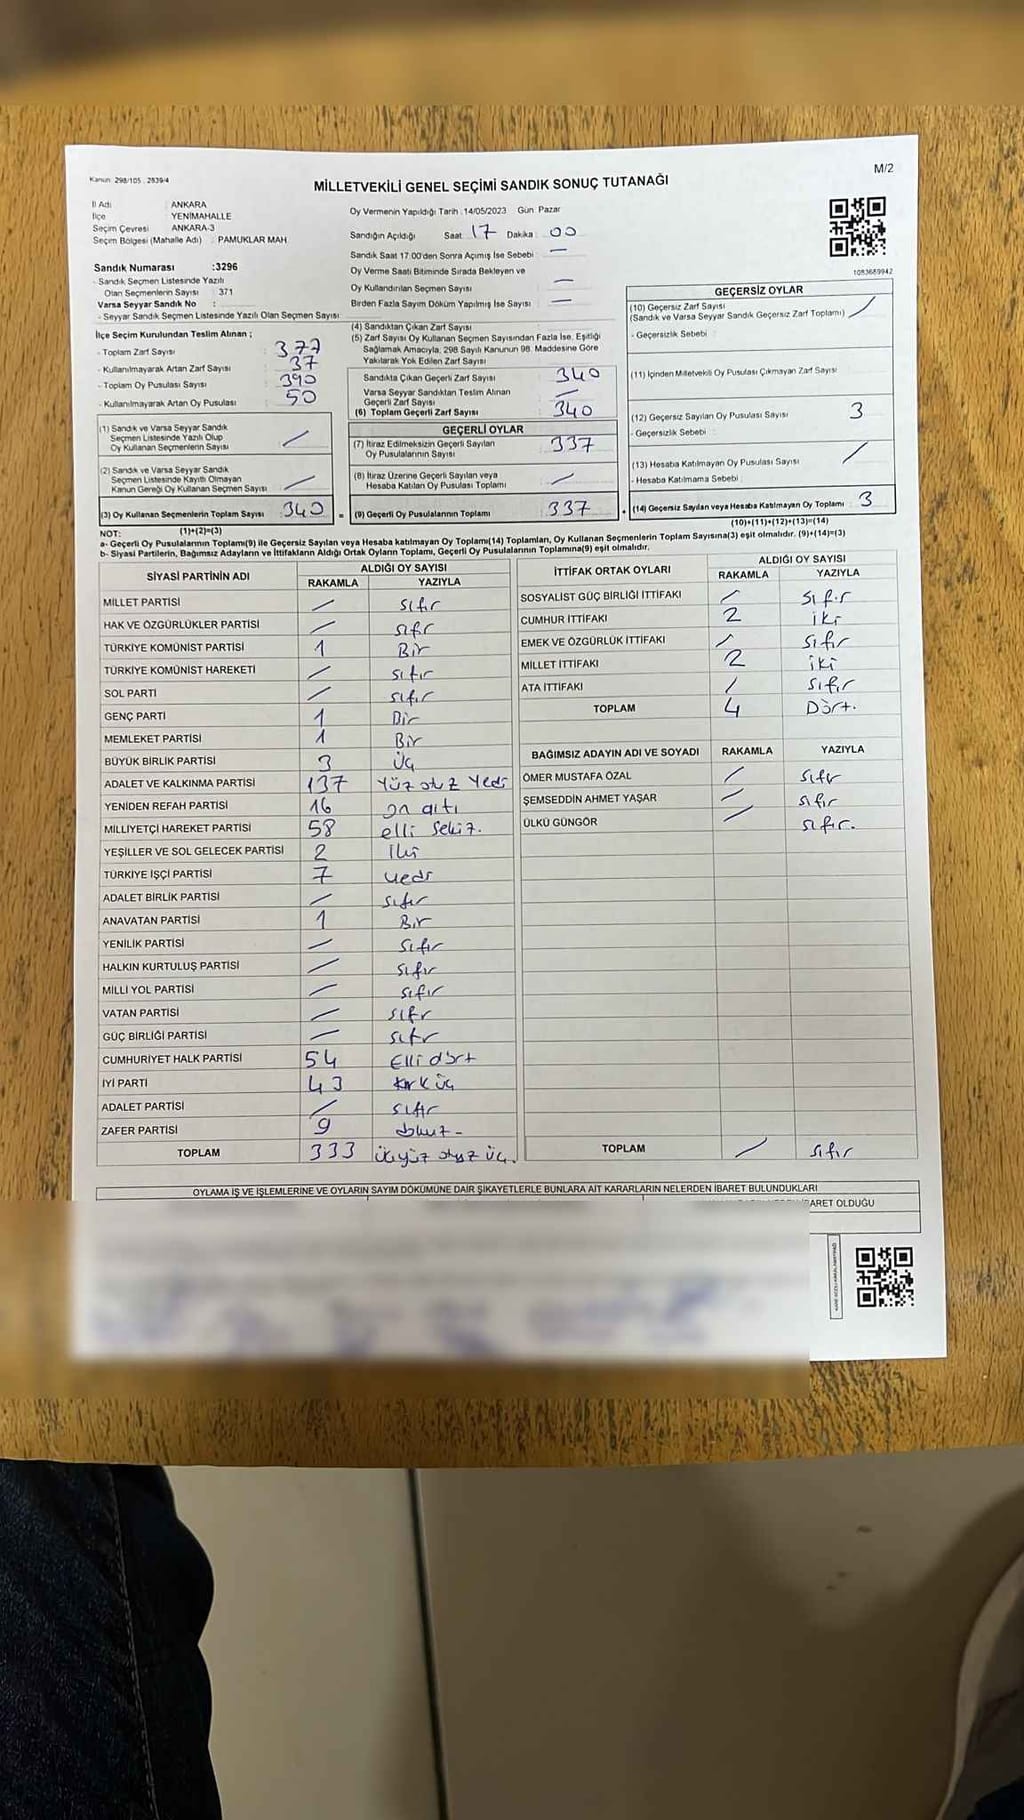 Kanun: 298/105 , 2839/4
M/2
MİLLETVEKİLİ GENEL SEÇİMİ SANDIK SONUÇ TUTANAĞI
İl Adı : ANKARA
İlçe : YENİMAHALLE
Seçim Çevresi : ANKARA-3
Seçim Bölgesi (Mahalle Adı) : PAMUKLAR MAH
Sandık Numarası :3296
- Sandık Seçmen Listesinde Yazılı
Olan Seçmenlerin Sayısı : 371
Varsa Seyyar Sandık No :
- Seyyar Sandık Seçmen Listesinde Yazılı Olan Seçmen Sayısı:
İlçe Seçim Kurulundan Teslim Alınan ;
- Toplam Zarf Sayısı : 377
- Kullanılmayarak Artan Zarf Sayısı : 37
- Toplam Oy Pusulası Sayısı : 390
- Kullanılmayarak Artan Oy Pusulası : 50
(1) Sandık ve Varsa Seyyar Sandık
Seçmen Listesinde Yazılı Olup
Oy Kullanan Seçmenlerin Sayısı : /
(2) Sandık ve Varsa Seyyar Sandık
Seçmen Listesinde Kayıtlı Olmayan
Kanun Gereği Oy Kullanan Seçmen Sayısı : /
(3) Oy Kullanan Seçmenlerin Toplam Sayısı : 340
(1)+(2)=(3)
Oy Vermenin Yapıldığı Tarih :14/05/2023 Gün: Pazar
Sandığın Açıldığı Saat 17 Dakika : 00
Sandık Saat 17:00'den Sonra Açımış İse Sebebi : —
Oy Verme Saati Bitiminde Sırada Bekleyen ve
Oy Kullandırılan Seçmen Sayısı : —
Birden Fazla Sayım Döküm Yapılmış İse Sayısı : —
(4) Sandıktan Çıkan Zarf Sayısı
(5) Zarf Sayısı Oy Kullanan Seçmen Sayısından Fazla İse, Eşitliği
Sağlamak Amacıyla, 298 Sayılı Kanunun 98. Maddesine Göre
Yakılarak Yok Edilen Zarf Sayısı
Sandıkta Çıkan Geçerli Zarf Sayısı : 340
Varsa Seyyar Sandıktan Teslim Alınan
Geçerli Zarf Sayısı : /
(6) Toplam Geçerli Zarf Sayısı : 340
GEÇERLİ OYLAR
(7) İtiraz Edilmeksizin Geçerli Sayılan
Oy Pusulalarının Sayısı : 337
(8) İtiraz Üzerine Geçerli Sayılan veya
Hesaba Katılan Oy Pusulası Toplamı : /
(9) Geçerli Oy Pusulalarının Toplamı : 337
1083689942
GEÇERSİZ OYLAR
(10) Geçersiz Zarf Sayısı :
(Sandık ve Varsa Seyyar Sandık Geçersiz Zarf Toplamı) /
- Geçersizlik Sebebi :
(11) İçinden Milletvekili Oy Pusulası Çıkmayan Zarf Sayısı :
(12) Geçersiz Sayılan Oy Pusulası Sayısı : 3
- Geçersizlik Sebebi :
(13) Hesaba Katılmayan Oy Pusulası Sayısı : /
- Hesaba Katılmama Sebebi :
(14) Geçersiz Sayılan veya Hesaba Katılmayan Oy Toplamı : 3
(10)+(11)+(12)+(13)=(14)
NOT:
a- Geçerli Oy Pusulalarının Toplamı(9) ile Geçersiz Sayılan veya Hesaba katılmayan Oy Toplamı(14) Toplamları, Oy Kullanan Seçmenlerin Toplam Sayısına(3) eşit olmalıdır. (9)+(14)=(3)
b- Siyasi Partilerin, Bağımsız Adayların ve İttifakların Aldığı Ortak Oyların Toplamı, Geçerli Oy Pusulalarının Toplamına(9) eşit olmalıdır.
SİYASİ PARTİNİN ADI ALDIĞI OY SAYISI
RAKAMLA YAZIYLA
MİLLET PARTİSİ / sıfır
HAK VE ÖZGÜRLÜKLER PARTİSİ / sıfır
TÜRKİYE KOMÜNİST PARTİSİ 1 Bir
TÜRKİYE KOMÜNİST HAREKETİ / sıfır
SOL PARTİ / sıfır
GENÇ PARTİ 1 Bir
MEMLEKET PARTİSİ 1 Bir
BÜYÜK BİRLİK PARTİSİ 3 Üç
ADALET VE KALKINMA PARTİSİ 137 Yüz otuz Yedi
YENİDEN REFAH PARTİSİ 16 on altı
MİLLİYETÇİ HAREKET PARTİSİ 58 elli Sekiz.
YEŞİLLER VE SOL GELECEK PARTİSİ 2 İki
TÜRKİYE İŞÇİ PARTİSİ 7 yedi
ADALET BİRLİK PARTİSİ / sıfır
ANAVATAN PARTİSİ 1 Bir
YENİLİK PARTİSİ / sıfır
HALKIN KURTULUŞ PARTİSİ / sıfır
MİLLİ YOL PARTİSİ / sıfır
VATAN PARTİSİ / sıfır
GÜÇ BİRLİĞİ PARTİSİ / sıfır
CUMHURİYET HALK PARTİSİ 54 Elli dört
İYİ PARTİ 43 Kırk üç
ADALET PARTİSİ / sıfır
ZAFER PARTİSİ 9 dokuz-
TOPLAM 333 üçyüz otuz üç.
İTTİFAK ORTAK OYLARI ALDIĞI OY SAYISI
RAKAMLA YAZIYLA
SOSYALİST GÜÇ BİRLİĞİ İTTİFAKI / sıfır
CUMHUR İTTİFAKI 2 iki
EMEK VE ÖZGÜRLÜK İTTİFAKI / sıfır
MİLLET İTTİFAKI 2 iki
ATA İTTİFAKI / sıfır
TOPLAM 4 Dört.
BAĞIMSIZ ADAYIN ADI VE SOYADI RAKAMLA YAZIYLA
ÖMER MUSTAFA ÖZAL / sıfır
ŞEMSEDDİN AHMET YAŞAR / sıfır
ÜLKÜ GÜNGÖR / sıfır.
TOPLAM / sıfır
OYLAMA İŞ VE İŞLEMLERİNE VE OYLARIN SAYIM DÖKÜMÜNE DAİR ŞİKAYETLERLE BUNLARA AİT KARARLARIN NELERDEN İBARET BULUNDUKLARI
BARET OLDUĞU